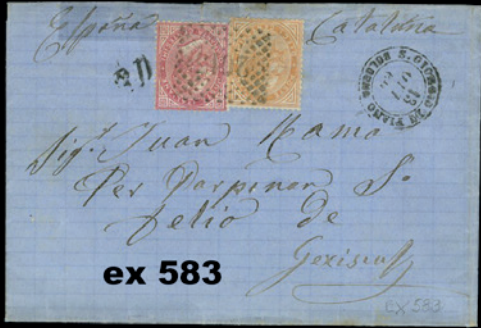 España Cataluña
PD
S. GIORGIO DI PIANO BOLOGNA
13
Sig.r Juan Ramo
Per Perpinan S.
Felio de
ex 583
ex 583